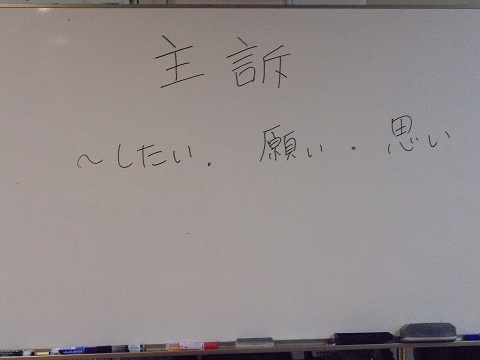 主訴
～したい. 願い・思い